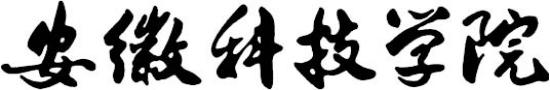 安徽科技学院